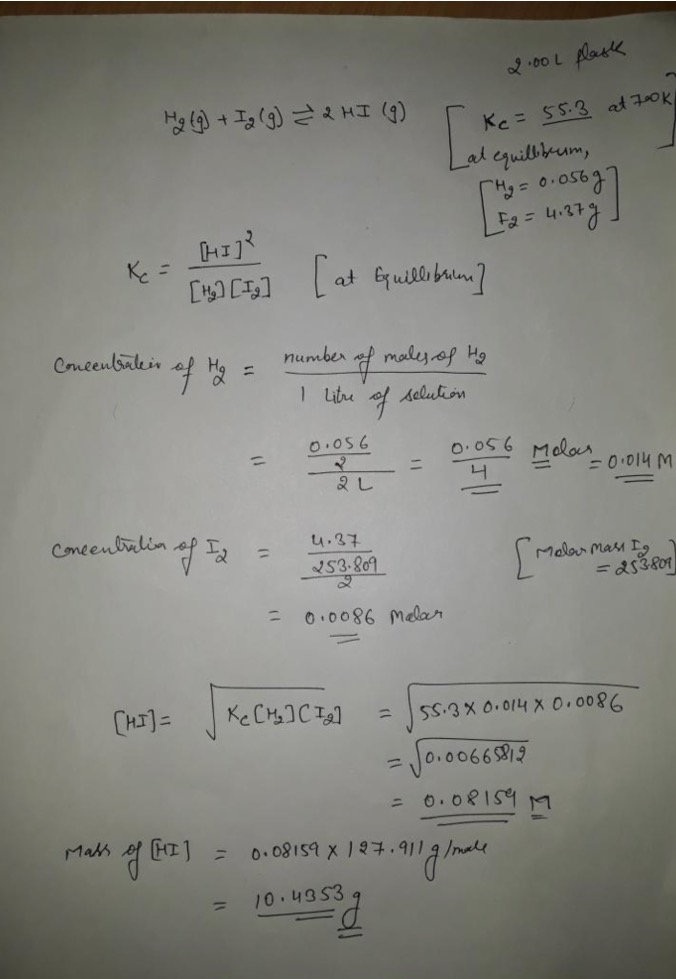 2.00L flask
H2(g) + I2(g) ⇌ 2 HI (g)
[Kc = 55.3 at 700K
at equillibrium,]
[H2 = 0.056g
I2 = 4.37g]
Kc = [HI]² / [H2][I2] [at Equillibrium]
Concentration of H2 = number of moles of H2 / 1 Litre of solution
= (0.056 / 2) / 2L = 0.056 / 4 Molar = 0.014 M
Concentration of I2 = (4.37 / 253.809) / 2 [Molar Mass I2 = 253.809]
= 0.0086 Molar
[HI] = √Kc[H2][I2] = √55.3 × 0.014 × 0.0086
= √0.00665812
= 0.08159 M
Mass of [HI] = 0.08159 × 127.911 g/mole
= 10.4353 g